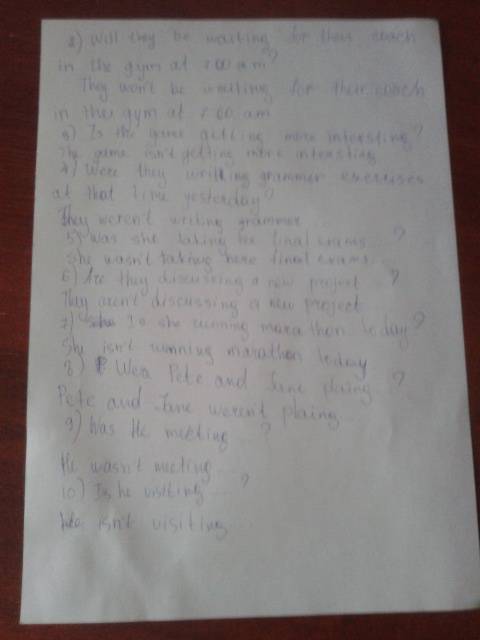 2) Will they be waiting for their coach
in the gym at 8 00 a m?
They won't be waiting for their coach
in the gym at 8 00 am
3) Is the game getting more interesting?
The game isn't getting more interesting
4) Were they writing grammer exercises
at that time yesterday?
They weren't writing grammer...
5) Was she taking her final exams...?
She wasn't taking here final exams...
6) Are they discussing a new project...?
They aren't discussing a new project
7) Is she running marathon today?
She isn't running marathon today
8) Wer Pete and Jane plaing...?
Pete and Jane weren't plaing...
9) Was He meeting...?
He wasn't meeting...
10) Is he visiting...?
He isn't visiting...